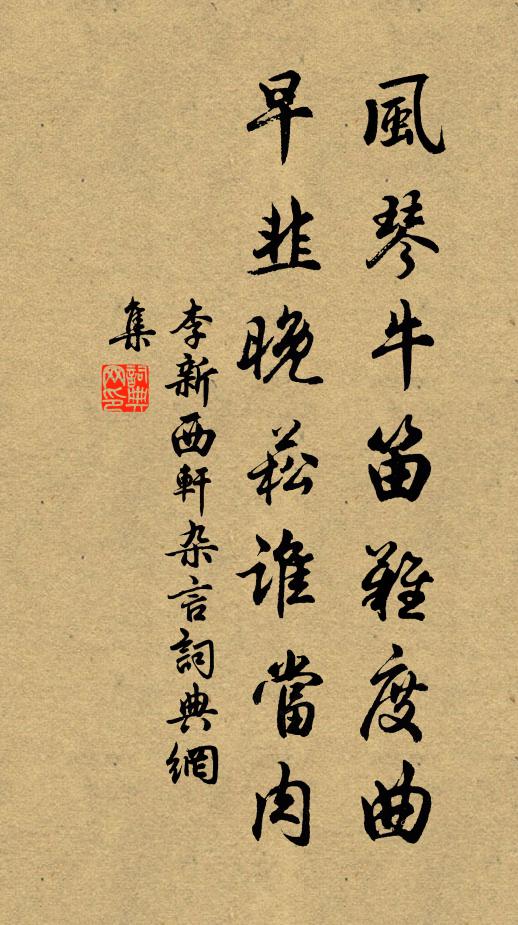 風琴牛笛難度曲
早韭晚菘誰當肉
李新西軒杂言詞典網
集
詞典網印